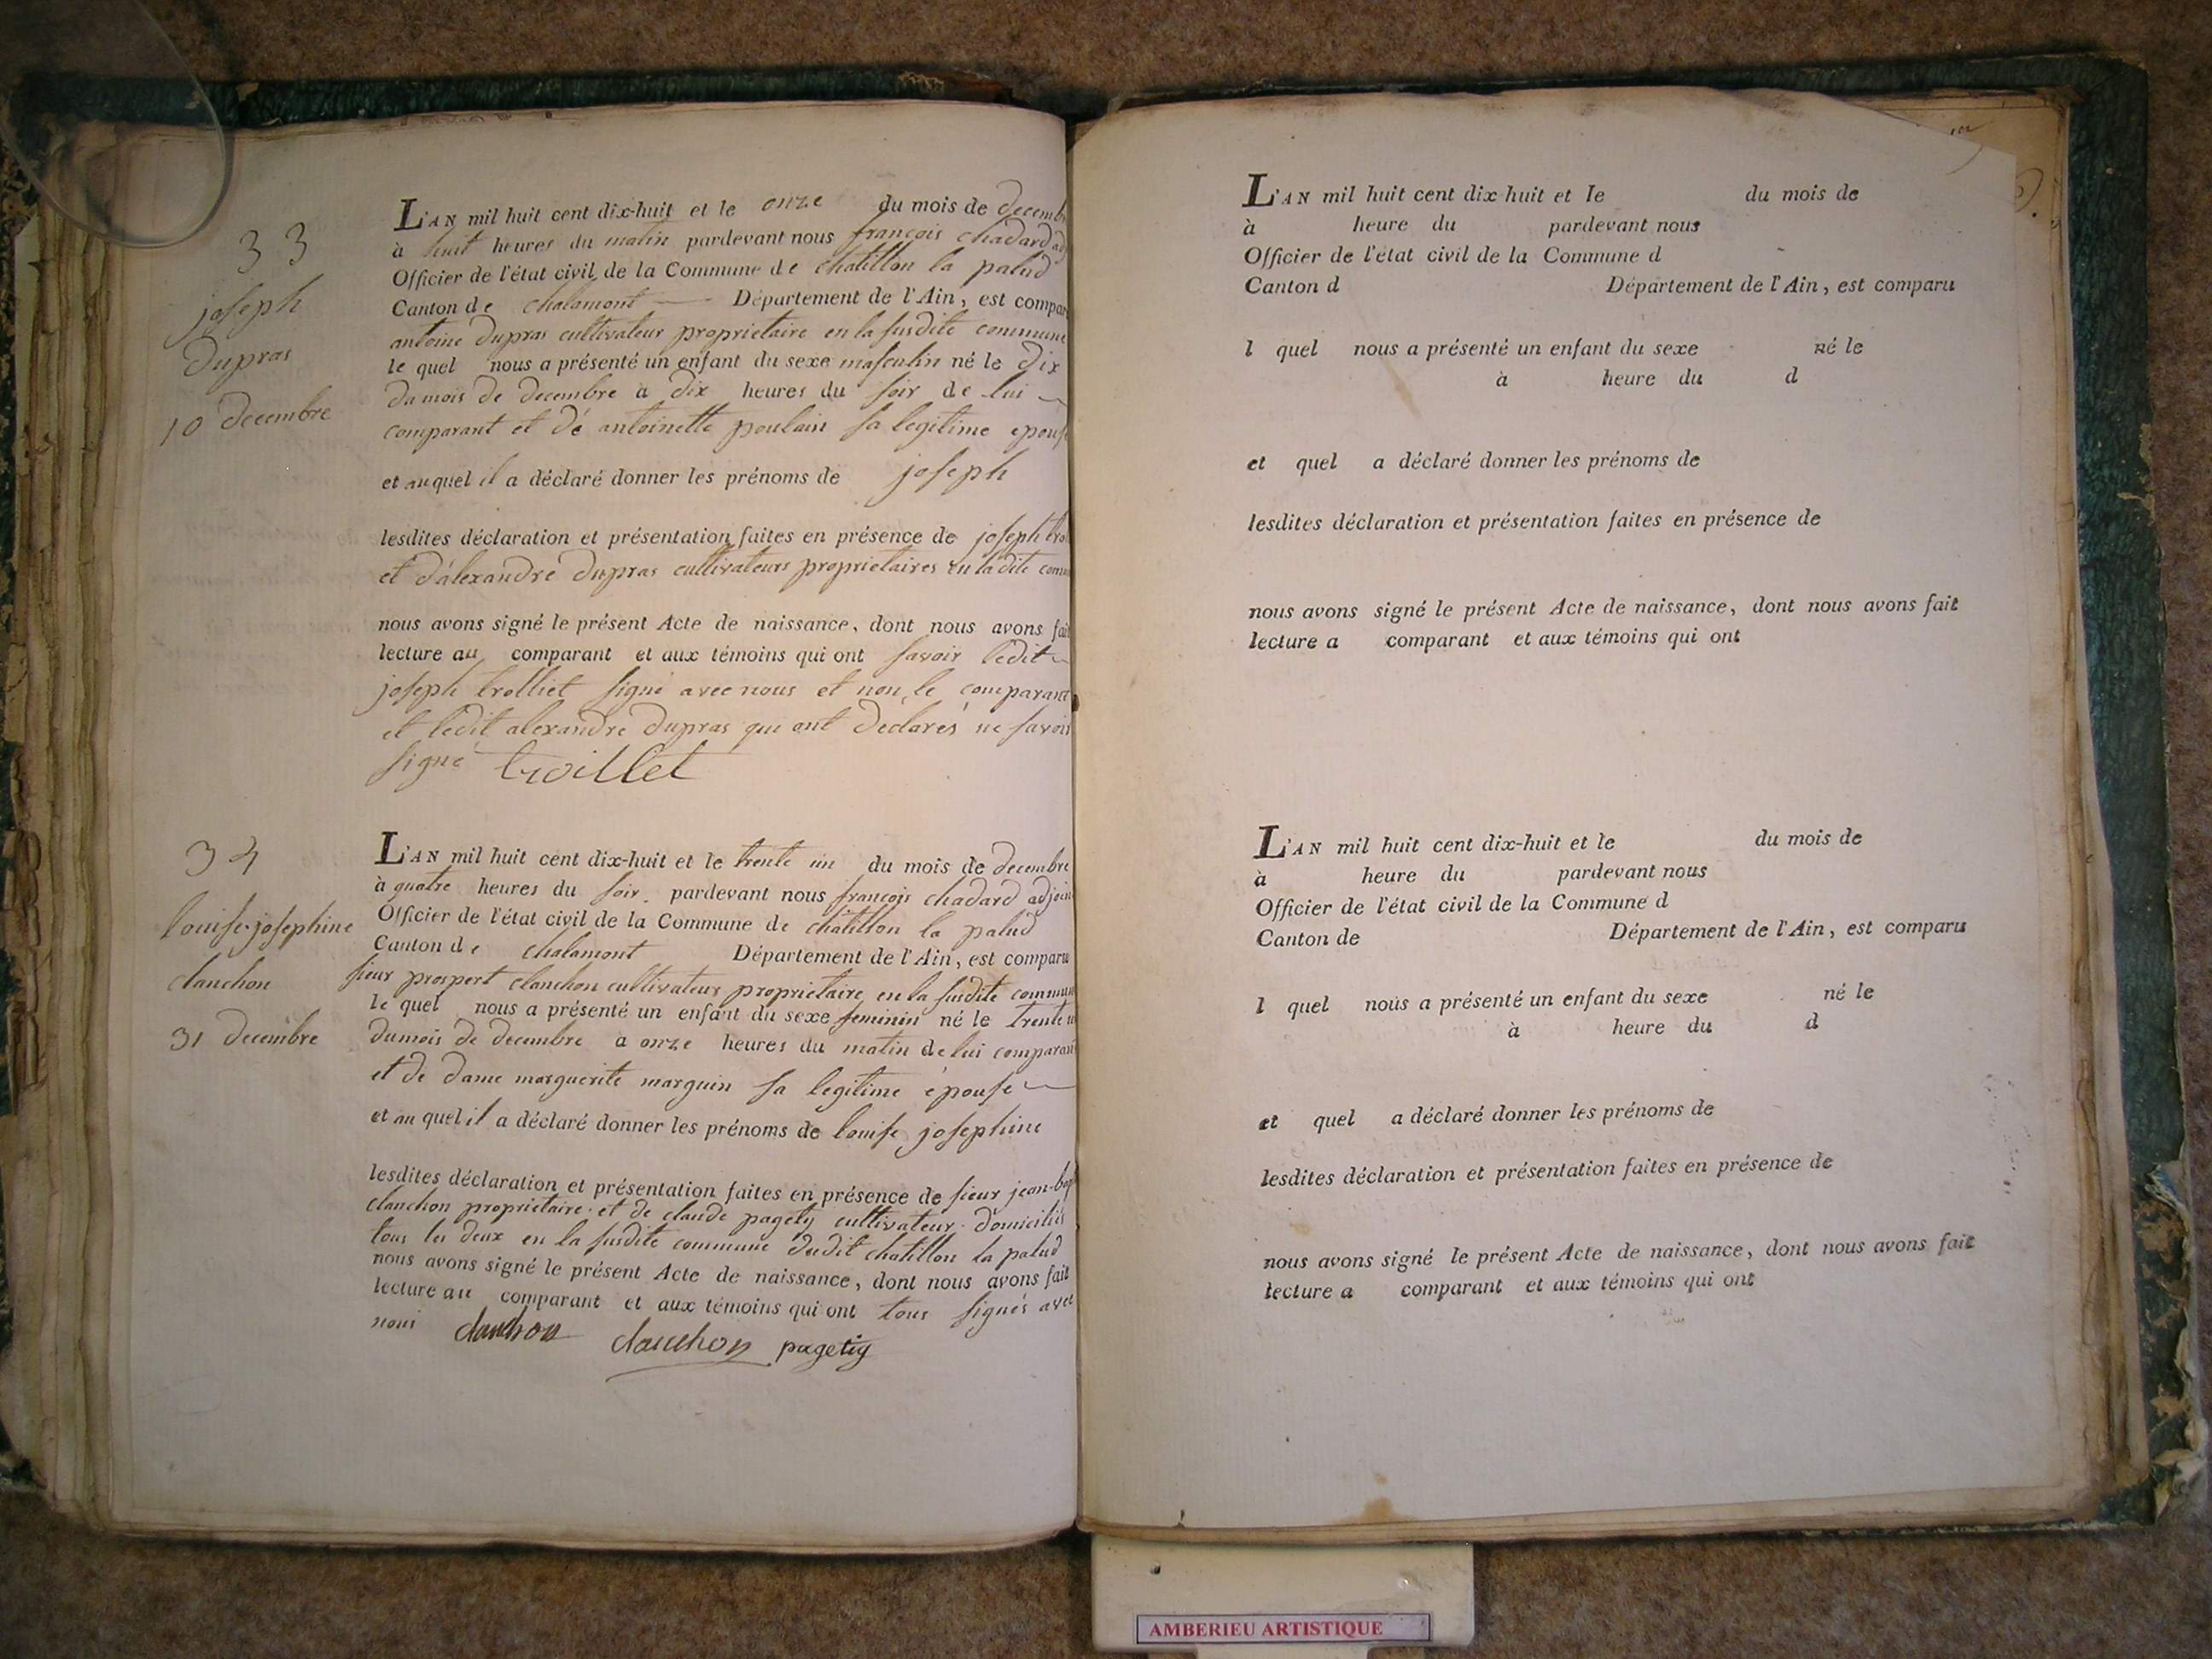 33
joseph
dupras
10 decembre
L'AN mil huit cent dix-huit et le onze du mois de decemb
à huit heures du matin pardevant nous françois chadard adj
Officier de l'état civil de la Commune de chatillon la palud
Canton de chalamont Département de l'Ain, est compar
antoine dupras cultivateur proprietaire en la susdite commune
le quel nous a présenté un enfant du sexe masculin né le dix
du mois de decembre à dix heures du soir de lui
comparant et dé antoinette poulain sa legitime epouse
et auquel il a déclaré donner les prénoms de joseph
lesdites déclaration et présentation faites en présence de joseph trol
et d'alexandre dupras cultivateurs proprietaires en la dite comm
nous avons signé le présent Acte de naissance, dont nous avons fait
lecture au comparant et aux témoins qui ont savoir ledit
joseph trolliet signé avec nous et non le comparant
et ledit alexandre dupras qui ont déclarés ne savoir
signé troillet
34
louise-josephine
clanchon
31 decembre
L'AN mil huit cent dix-huit et le trente un du mois de decembre
à quatre heures du soir. pardevant nous françois chadard adjoin
Officier de l'état civil de la Commune de chatillon la palud
Canton de chalamont Département de l'Ain, est comparu
sieur prospert clanchon cultivateur proprietaire en la susdite commun
le quel nous a présenté un enfant du sexe feminin né le trente u
du mois de decembre à onze heures du matin de lui comparant
et de dame marguerite marguin sa legitime épouse
et au quel il a déclaré donner les prénoms de louise josephine
lesdites déclaration et présentation faites en présence de sieur jean-bap
clanchon proprietaire et de claude pagety cultivateur domiciliés
tous les deux en la susdite commune dudit chatillon la palud
nous avons signé le présent Acte de naissance, dont nous avons fait
lecture au comparant et aux témoins qui ont tous signés avec
nous clanchon clanchon pagetiy
L'AN mil huit cent dix-huit et le du mois de
à heure du pardevant nous
Officier de l'état civil de la Commune d
Canton d Département de l'Ain, est comparu
l quel nous a présenté un enfant du sexe né le
à heure du d
et quel a déclaré donner les prénoms de
lesdites déclaration et présentation faites en présence de
nous avons signé le présent Acte de naissance, dont nous avons fait
lecture a comparant et aux témoins qui ont
L'AN mil huit cent dix-huit et le du mois de
à heure du pardevant nous
Officier de l'état civil de la Commune d
Canton de Département de l'Ain, est comparu
l quel nous a présenté un enfant du sexe né le
à heure du d
et quel a déclaré donner les prénoms de
lesdites déclaration et présentation faites en présence de
nous avons signé le présent Acte de naissance, dont nous avons fait
lecture a comparant et aux témoins qui ont
AMBERIEU ARTISTIQUE